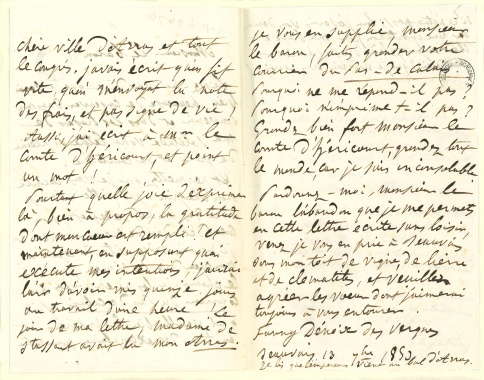 chère ville d'Arras et tout
le Congrès. j'avais écrit qu'on fit
vite, qu'on m'envoyat la note
des frais, et pas signe de vie !
Aussi, j'ai écrit à Mr le
Comte d'héricourt, et point
un mot !
Pourtant quelle joie d'exprimer
là, bien à propos, la gratitude
dont mon cœur est rempli et
maintenant, en supposant qu'on
exécute mes intentions j'aurais
l'air d'avoir mis quinze jours
au travail d'une heure. Le
jour de ma lettre, madame de
Stassart avait lu mon Arras.
je vous en supplie, monsieur
le baron, faites gronder votre
Courrier du Pas-de-Calais
Pourquoi ne me répond-il pas ?
Pourquoi n'imprime-t-il pas ?
Grondez bien fort Monsieur le
Comte d'héricourt grondez tout
le monde car je suis inconsolable
Pardonnez-moi, monsieur le
baron l'abandon que je me permets
en cette lettre écrite sans loisir,
venez je vous en prie à Beauvais
sous mon toit de vigne de lierre
et de clématites, et veuillez
agréer les vœux dont j'aimerai
toujours à vous entourer.
Fanny Denoix des Vergnes
Beauvais, 13 7bre 1853
je lis que l'empereur vient au d'Arras.